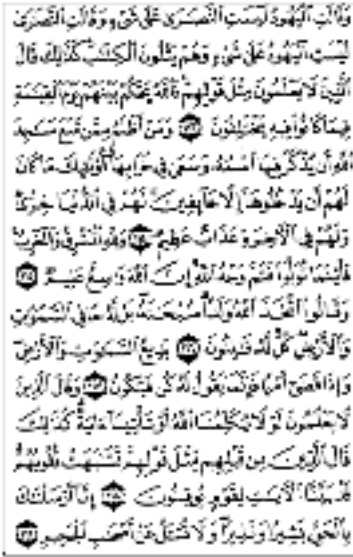 وَقَالَتِ الْيَهُودُ لَيْسَتِ النَّصَارَىٰ عَلَىٰ شَيْءٍ وَقَالَتِ النَّصَارَىٰ
لَيْسَتِ الْيَهُودُ عَلَىٰ شَيْءٍ وَهُمْ يَتْلُونَ الْكِتَابَ كَذَٰلِكَ قَالَ
الَّذِينَ لَا يَعْلَمُونَ مِثْلَ قَوْلِهِمْ فَاللَّهُ يَحْكُمُ بَيْنَهُمْ يَوْمَ الْقِيَامَةِ
فِيمَا كَانُوا فِيهِ يَخْتَلِفُونَ ١١٣ وَمَنْ أَظْلَمُ مِمَّنْ مَنَعَ مَسَاجِدَ
اللَّهِ أَنْ يُذْكَرَ فِيهَا اسْمُهُ وَسَعَىٰ فِي خَرَابِهَا أُولَٰئِكَ مَا كَانَ
لَهُمْ أَنْ يَدْخُلُوهَا إِلَّا خَائِفِينَ لَهُمْ فِي الدُّنْيَا خِزْيٌ
وَلَهُمْ فِي الْآخِرَةِ عَذَابٌ عَظِيمٌ ١١٤ وَلِلَّهِ الْمَشْرِقُ وَالْمَغْرِبُ
فَأَيْنَمَا تُوَلُّوا فَثَمَّ وَجْهُ اللَّهِ إِنَّ اللَّهَ وَاسِعٌ عَلِيمٌ ١١٥
وَقَالُوا اتَّخَذَ اللَّهُ وَلَدًا سُبْحَانَهُ بَلْ لَهُ مَا فِي السَّمَاوَاتِ
وَالْأَرْضِ كُلٌّ لَهُ قَانِتُونَ ١١٦ بَدِيعُ السَّمَاوَاتِ وَالْأَرْضِ
وَإِذَا قَضَىٰ أَمْرًا فَإِنَّمَا يَقُولُ لَهُ كُنْ فَيَكُونُ ١١٧ وَقَالَ الَّذِينَ
لَا يَعْلَمُونَ لَوْلَا يُكَلِّمُنَا اللَّهُ أَوْ تَأْتِينَا آيَةٌ كَذَٰلِكَ
قَالَ الَّذِينَ مِنْ قَبْلِهِمْ مِثْلَ قَوْلِهِمْ تَشَابَهَتْ قُلُوبُهُمْ
قَدْ بَيَّنَّا الْآيَاتِ لِقَوْمٍ يُوقِنُونَ ١١٨ إِنَّا أَرْسَلْنَاكَ
بِالْحَقِّ بَشِيرًا وَنَذِيرًا وَلَا تُسْأَلُ عَنْ أَصْحَابِ الْجَحِيمِ ١١٩